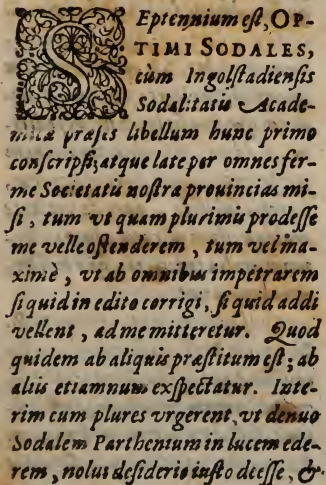 SEptennium eſt, OP-
TIMI SODALES,
cùm Ingolſtadienſis
Sodalitatis Acade-
micæ præſes libellum hunc primo
conſcripſi, atque late per omnes fer-
me Societatis noſtræ prouincias mi-
ſi, tum vt quam plurimis prodeſſe
me velle oſtenderem, tum vel ma-
ximè, vt ab omnibus impetrarem
ſi quid in edito corrigi, ſi quid addi
vellent, ad me mitteretur. Quod
quidem ab aliquis præſtitum eſt; ab
aliis etiamnum exſpectatur. Inte-
rim cum plures vrgerent, vt denuo
Sodalem Parthenium in lucem ede-
rem, nolui deſiderio iuſto deeſſe, &